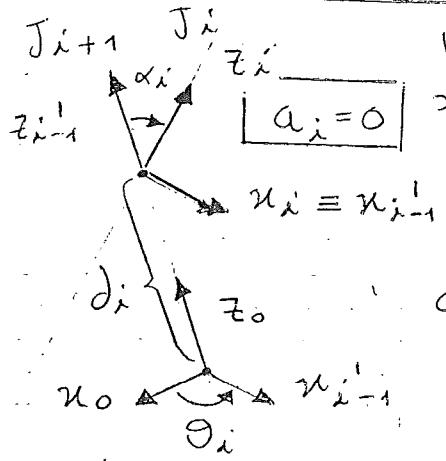 J_{i+1} J_i
α_i z_i
z'_{i-1}
a_i = 0
x_i ≡ x'_{i-1}
d_i
z_0
x_0 x'_{i-1}
θ_i